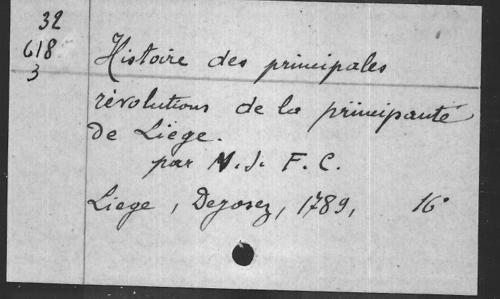 32
618
3
Histoire des principales
révolutions de la principauté
de Liège.
par M. J. F. C.
Liege, Desosez, 1789, 16°